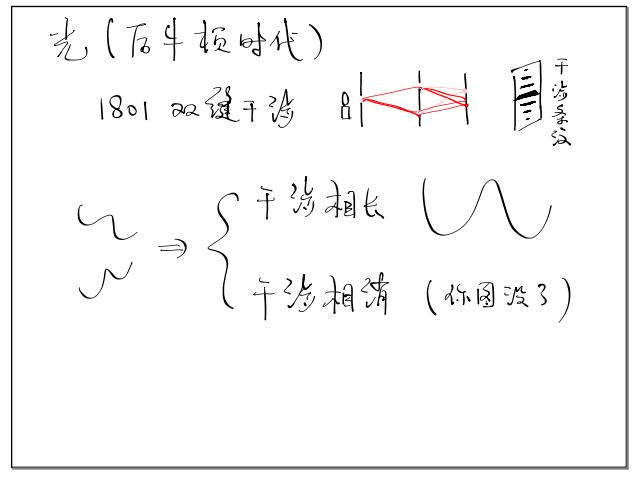 光(后牛顿时代)
1801 双缝干涉
干涉条纹
干涉相长
干涉相消 (你图没了)